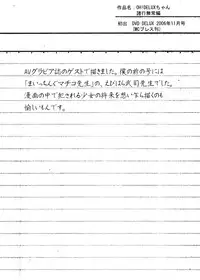 作品名：OH!DELUXちゃん
諸行無常編
初出 DVD DELUX 2006年11月号
(MCプレス刊)
AVグラビア誌のゲストで描きました。僕の前の号には
「まいっちんぐマチコ先生」の、えびはら武司先生でした。
漫画の中で犯される少女の将来を想い乍ら描くのも
愉しいもんです。